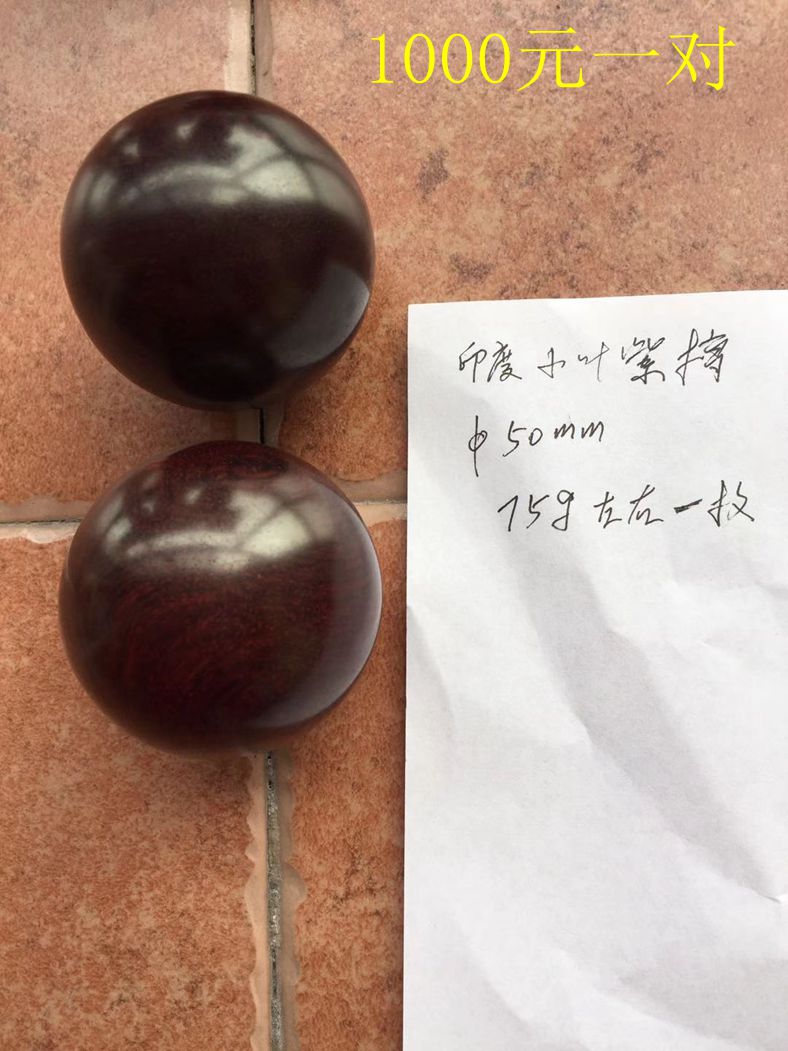 1000元一对
印度小叶紫檀
φ50mm
75g左右一枚